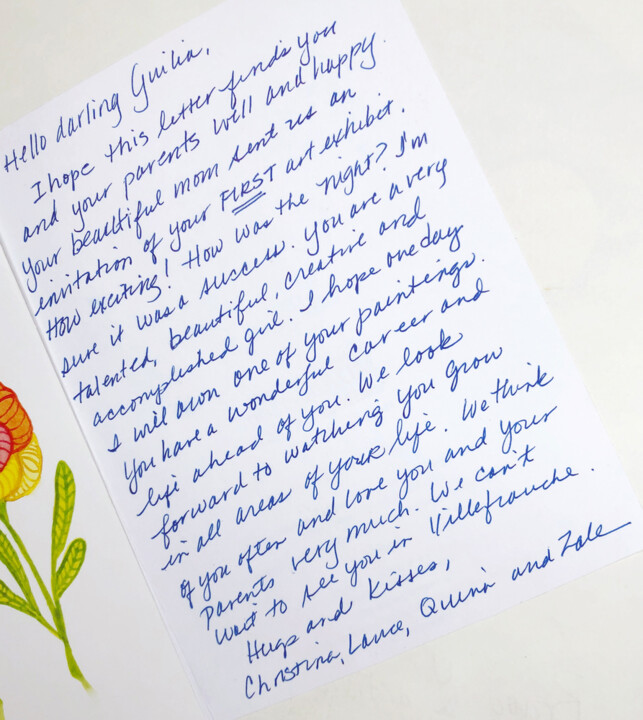 Hello darling Guilia,
I hope this letter finds you
and your parents well and happy.
Your beautiful mom sent us an
invitation of your FIRST art exhibit.
How exciting! How was the night? I'm
sure it was a success. You are a very
talented, beautiful, creative and
accomplished girl. I hope one day
I will own one of your paintings.
You have a wonderful career and
life ahead of you. We look
forward to watching you grow
in all areas of your life. We think
of you often and love you and your
Parents very much. We can't
wait to see you in Villefranche.
Hugs and Kisses,
Christina, Lance, Quinn and Zale